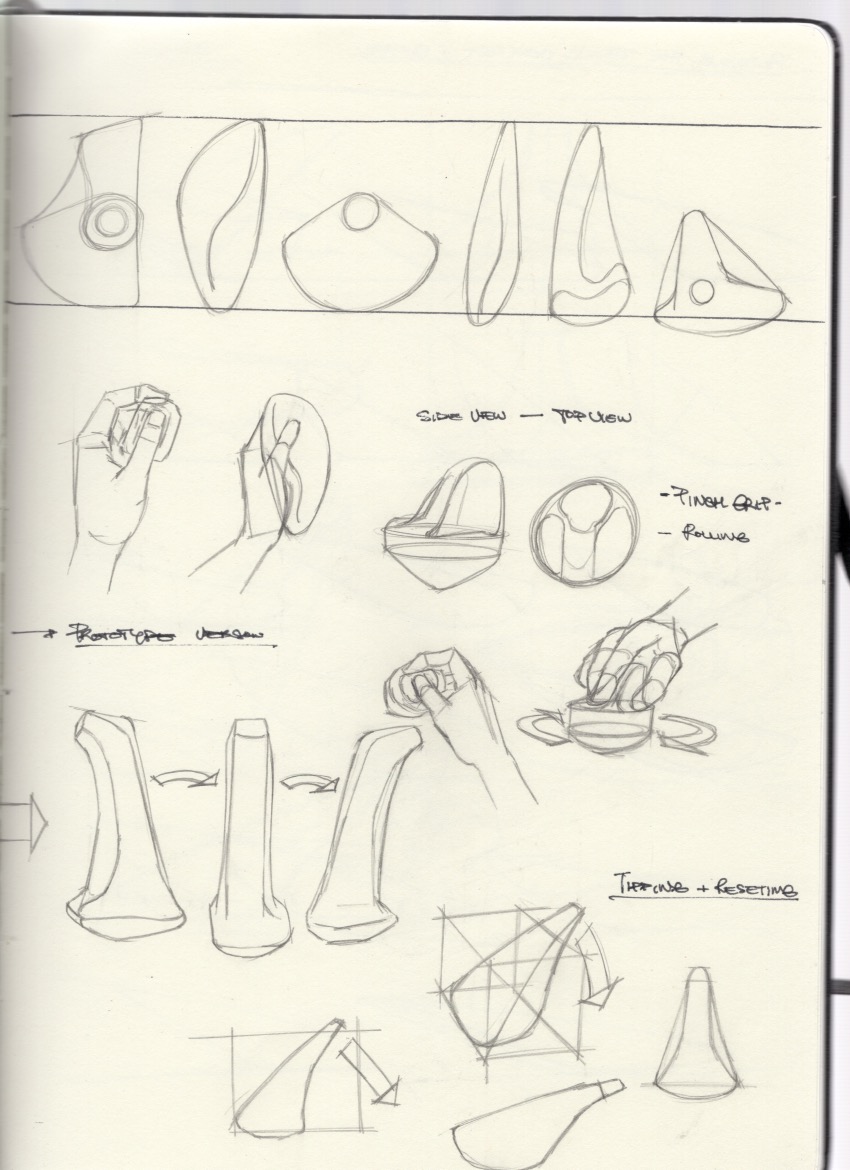 SIDE VIEW — TOP VIEW
- PINCH GRIP -
- ROLLING
→ PROTOTYPE VERSION
TIPPING + RESETING